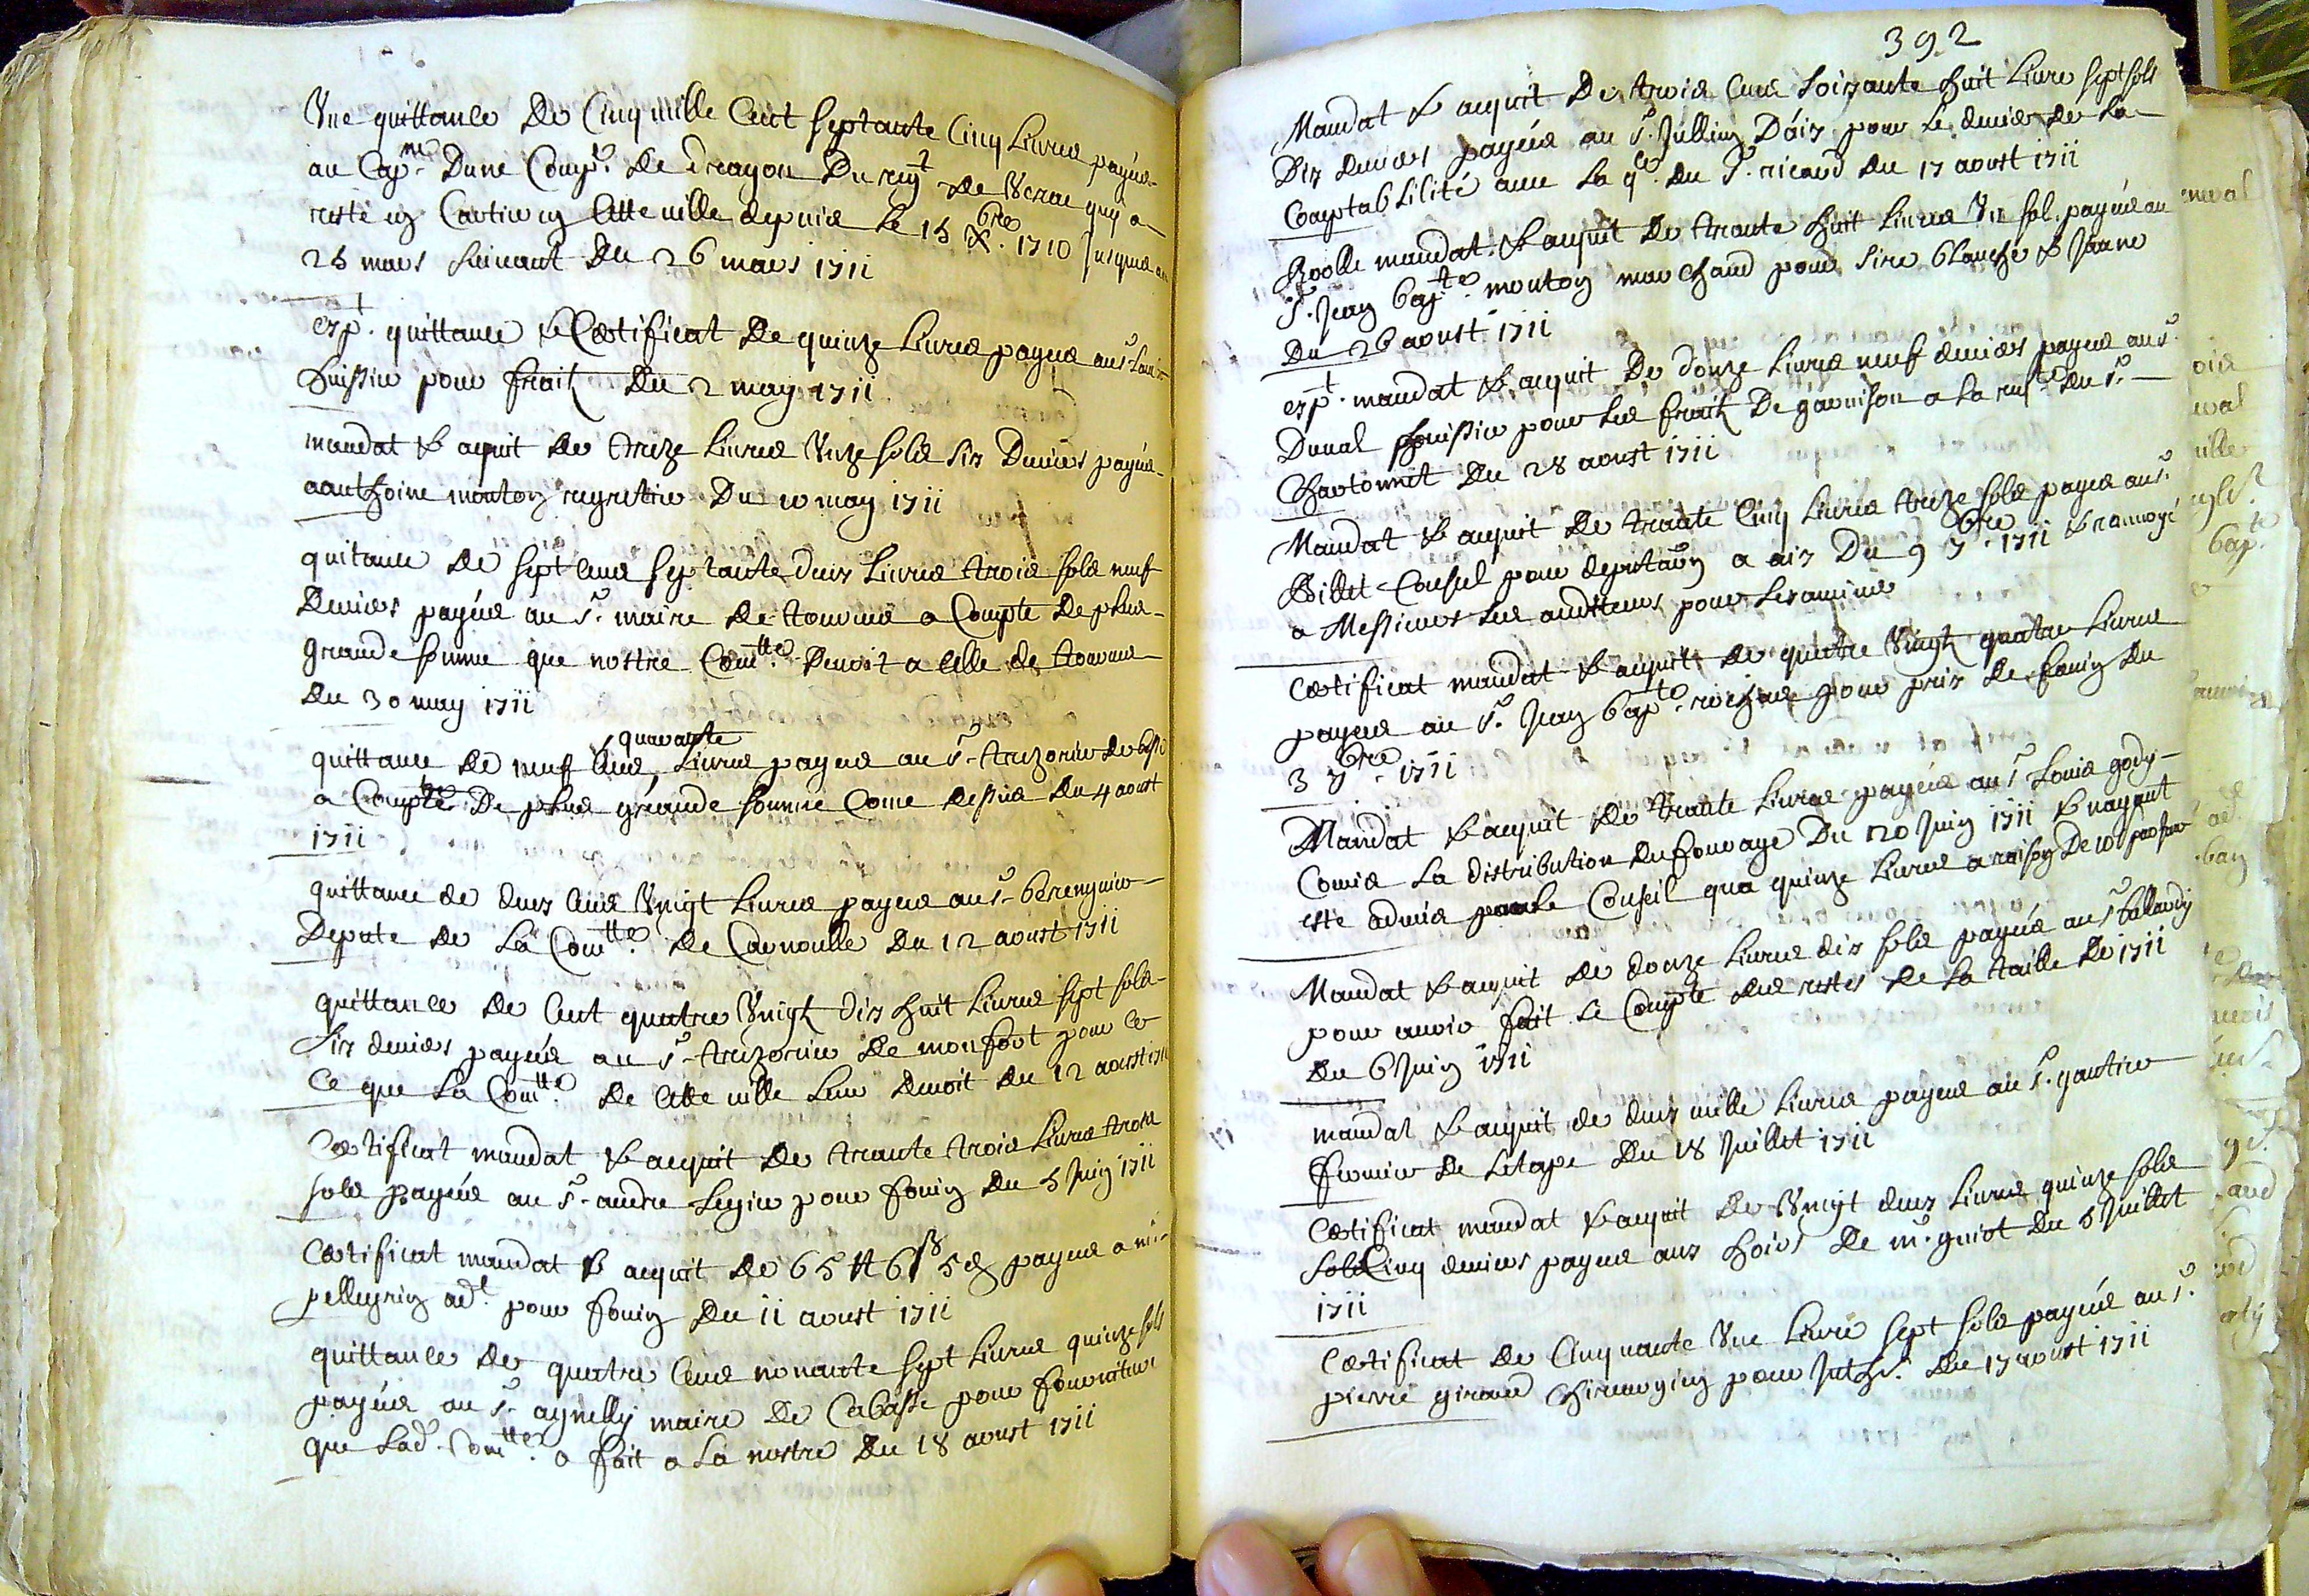 Une quittance De Cinq mille Cent septante Cinq Livres payées
au Cap.ne Dune Comp.e De dragon Du reg.t de Verac quy a
resté en Cartier en Cette ville depuis Le 15 X.bre 1710 Jusques au
25 mars suivant Du 26 mars 1711
exp.t quittance & Certificat De quinze Livres payees au s.r
huissier pour fraix Du 2 may 1711
mandat & aquit de treize Livres Unze sols six Deniers payées
a anthoine mouton regretier Du 10 may 1711
quitance De sept cens septante deux Livres trois sols neuf
Deniers payées au s.r maire de tourves a Compte De plus
grande somme que nostre Com.tte Devoit a Celle de tourves
Du 30 may 1711
quittance De neuf Cens quarante Livres payees au s.r trezorier de besse
a Compte De plus grande somme Come dessus Du 4 aoust
1711
quittance de deux Cens Vingt Livres payees au s.r berenguier
Depute de La Com.tte De Carnoulle Du 12 aoust 1711
quittance De Cent quatre Vingt dix huit Livres sept sols
six deniers payées au s.r trezorier De monfort pour Ce
Ce que La Com.tte De Cette ville Leur Devoit Du 12 aoust 1711
Certificat mandat & acquit De trante trois Livres
sols payées au s.r andre Legier pour foin Du 5 Juin 1711
Certificat mandat & acquit de 65 ₶ 6 s 5 d payees a m.r
pellegrin ad.t pour foin Du 11 aoust 1711
quittance De quatre Cens nonante sept Livres quinze sols
payées au s.r aynelly maire De Cabasse pour fourniture
que Lad. Com.tte a fait a La nostre Du 18 aoust 1711
392
Mandat & aquit De trois Cens soixante huit Livres sept sols
Dix Deniers payées au s.r Jullien D'aix pour Le devier de La
Comptabilité avec La q.ce Du s.r ricaud Du 17 aoust 1711
Roolle mandat & acquit De trante huit Livres Un sol payées au
s.r Jean bap.te mouton marchand pour sire blanche & Jaune
Du 26 aoust 1711
exp.t mandat & acquit De douze Livres neuf deniers payees au s.r
Duval huissier pour Les fraix De garnison a La req.te Du s.r
Chartonnet Du 28 aoust 1711
Mandat & acquit De trante Cinq Livres treize sols payees au s.r
Billet Consul pour deputa͠on a aix Du 9 7.bre 1711 & ranvoyé
a Messieurs Les auditeurs pour Lexaminer
Certificat mandat & acquit de quatre Vingt quatre Livres
payees au s.r Jean bap.te pour prix De foin Du
3 7.bre 1711
Mandat & acquit De trante Livres payées au s.r Louis gody
Comis La distribution du fourage Du 20 Juin 1711 & nayant
esté admis par Le Conseil qua quinze Livres a raison De 10 s par Jour
Mandat & acquit de douze Livres dix sols payées au s.r ballardy
pour avoir fait Le Compte des restes De La taille De 1711
Du 6 Juin 1711
mandat & acquit de deux mille Livres payees au s.r gautier
fermier De Letape Du 18 Juillet 1711
Certificat mandat & acquit De Vingt deux Livres quinze sols
Cinq deniers payees aux hoirs De m.e guiot Du 5 Juillet
1711
Certificat De Cinquante Une Livre sept sols payées au s.r
pierre giraud chirurgien pour Du 17 aoust 1711